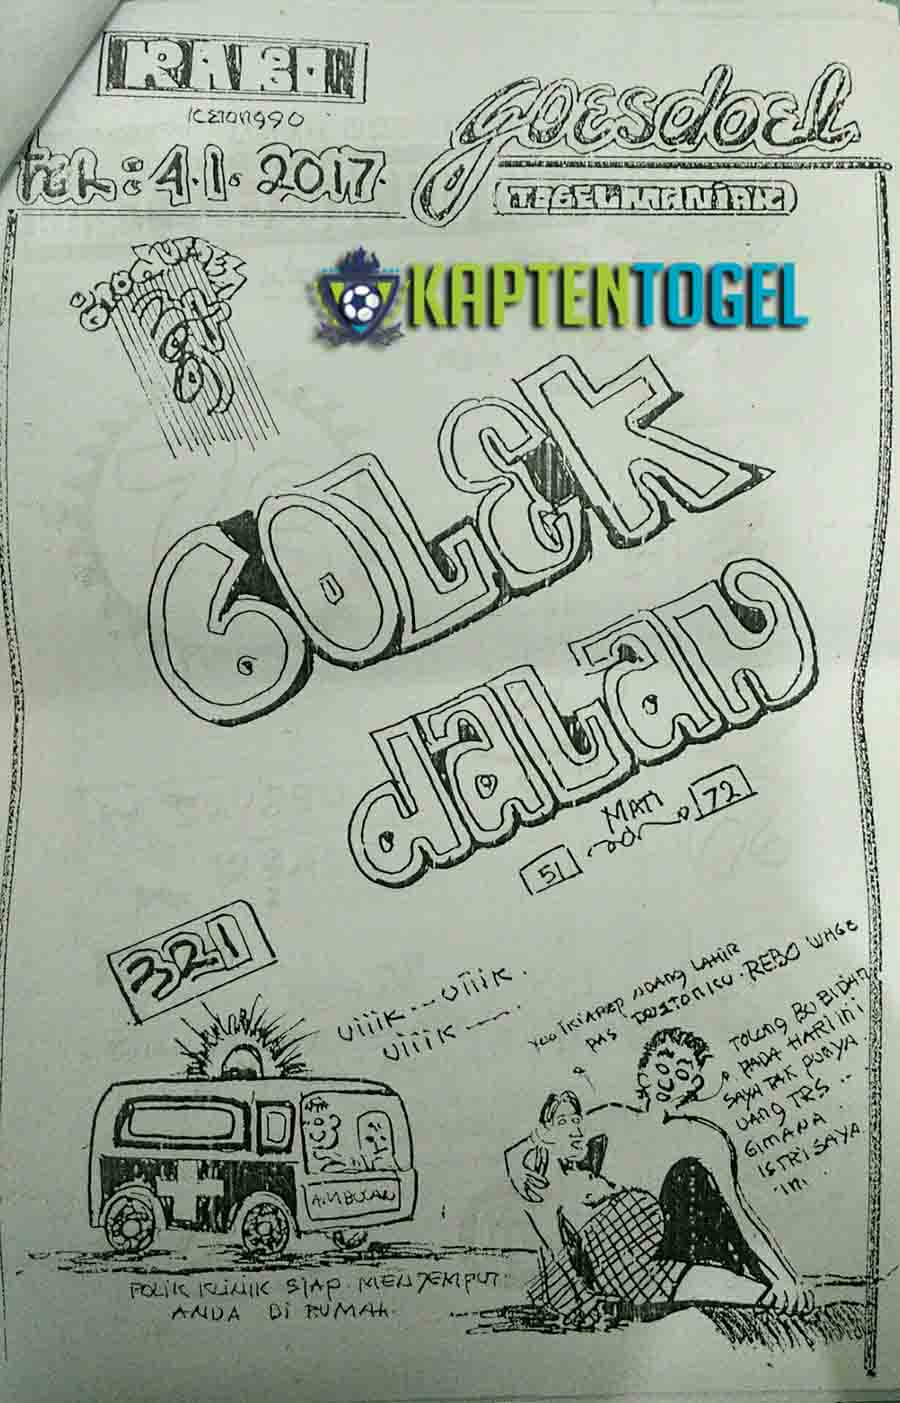 RABO
KETONGGO
FER: 4.1.2017.
GOESDOEL
TOGELMANIAK
KAPTENTOGEL
COLEK
JALAN
51 MATI 72
321
UiiiK---UiiiK.
UiiiK---.
REBO WAGE
PAS
NDANG LAHIR
TOLONG BU BIDAN
PADA HARI INI
SAYA TAK PUNYA
UANG TRS..
GIMANA.
ISTRI SAYA
INI.
AMBULAN
POLIK KLINIK SIAP MENJEMPUT
ANDA DI RUMAH.